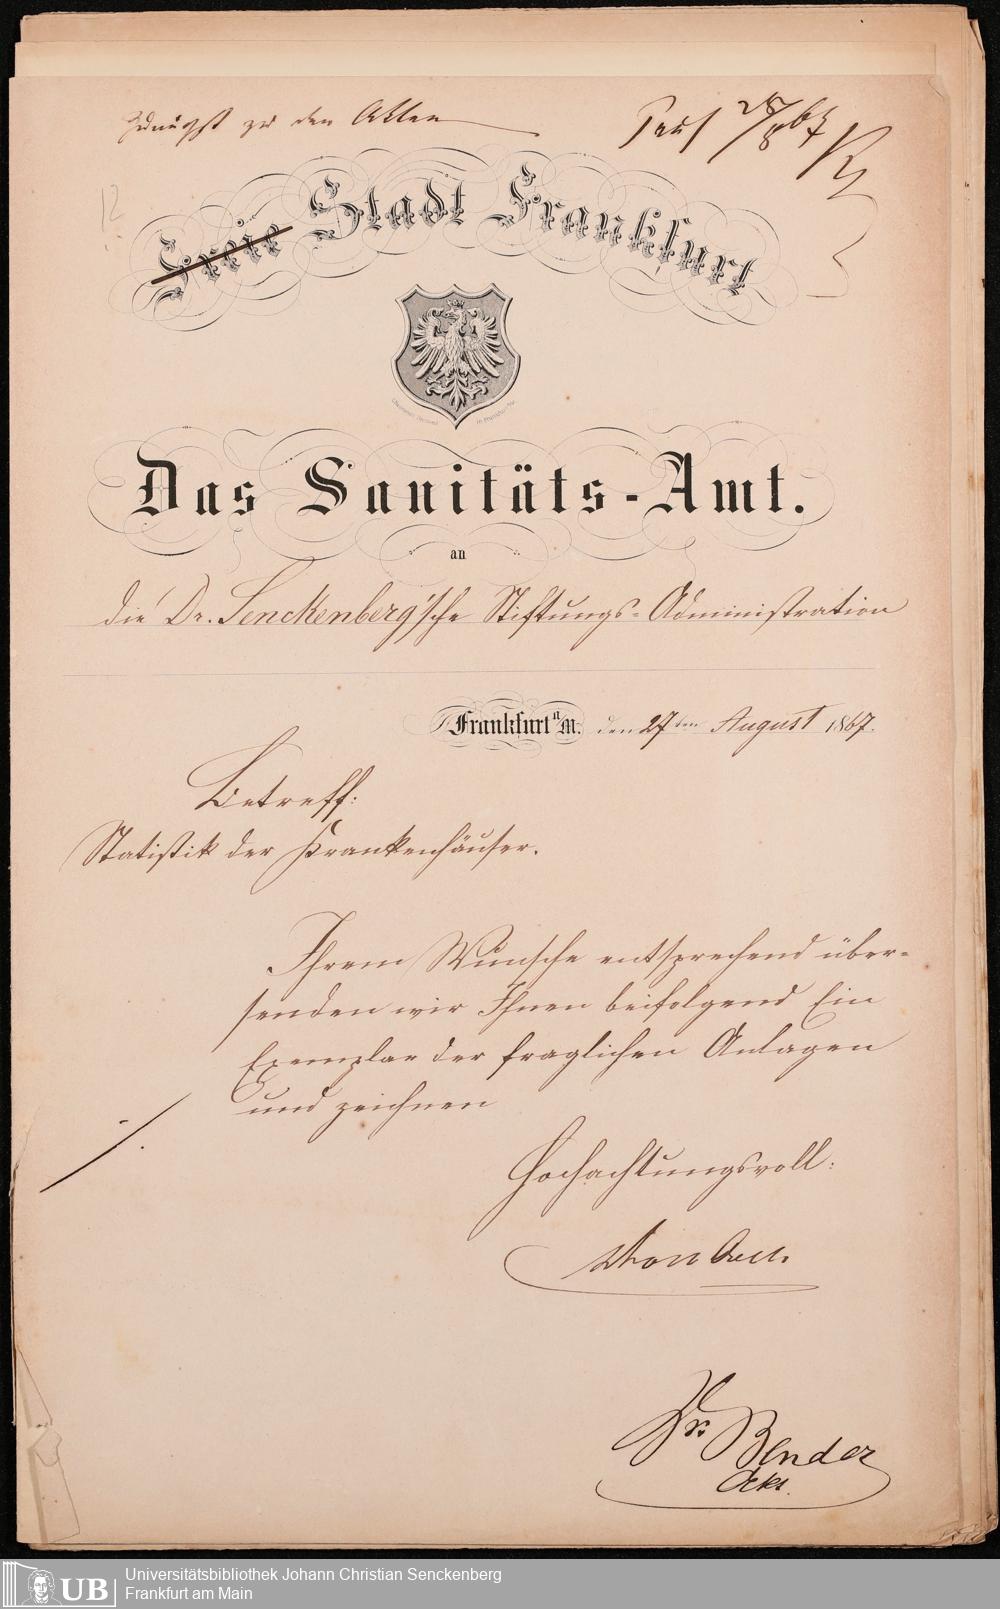 zunächst zu den Akten
28/8 67
12
Freie Stadt Frankfurt
Das Sanitäts-Amt.
an
die Dr. Senckenberg'sche Stiftungs-Administration
Frankfurt a/M. den 27ten August 1867.
Betreff:
Statistik der Krankenhäuser.
Ihrem Wunsche entsprechend über-
senden wir Ihnen beifolgend Ein
Exemplar der fraglichen Anlagen
und zeichnen
Hochachtungsvoll:
Dr Bender
Universitätsbibliothek Johann Christian Senckenberg
UB Frankfurt am Main